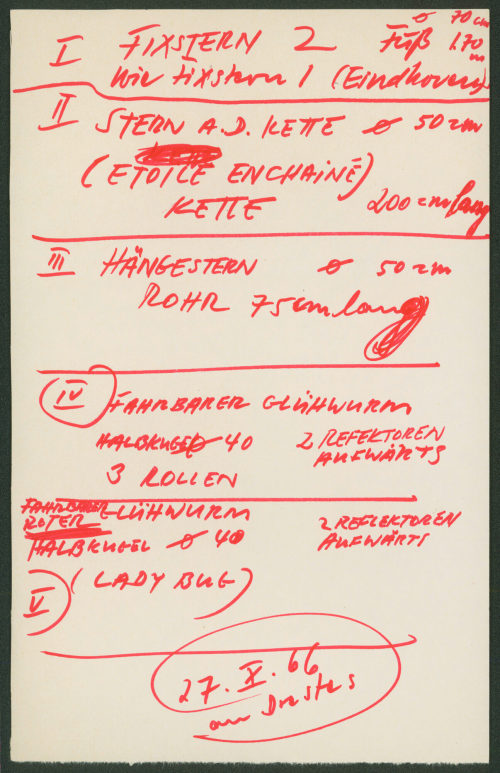 ø 70 cm
I FIXSTERN 2 Fuß 1.70 m
wie Fixstern 1 (Eindhoven)
II STERN A.D. KETTE ø 50 cm
(ETOILE ENCHAINÉ)
KETTE 200 cm lang
III HÄNGESTERN ø 50 cm
ROHR 75 cm lang
(IV) FAHRBARER GLÜHWURM
HALBKUGEL ø 40 2 REFEKTOREN
AUFWÄRTS
3 ROLLEN
FAHRBARER
ROTER GLÜHWURM 2 REFLEKTOREN
HALBKUGEL ø 40 AUFWÄRTS
V (LADY BUG)
27. X. 66
an